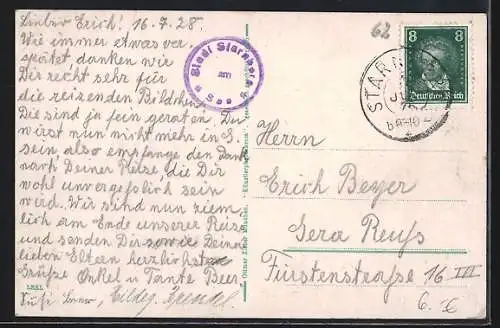 Lieber Erich! 16.7.28.
Wie immer etwas ver-
spätet danken wir
Dir recht sehr für
die reizenden Bildchen.
Die sind ja fein geraten. Du
wirst nun nicht mehr in S.
sein also empfange den Dank
nach Deiner Reise, die Dir
wohl unvergeßlich sein
wird. Wir sind nun ziem-
lich am Ende unserer Reise
und senden Dir sowie Deinen
lieben Eltern herzlichste
Grüße Onkel u Tante Beer
Stadt Starnberg
am
See
62
8 8
Deutsches Reich
STARN
Herrn
Erich Beyer
Gera Reuß
Fürstenstraße 16 III